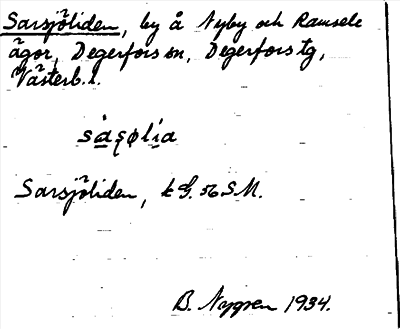 Sarsjöliden, by å Nyby och Ramsele
ägor, Degerfors sn, Degerfors tg,
Västerb. l.
Sarsjöliden, k G. 56 S.M.
B. Nygren 1934.